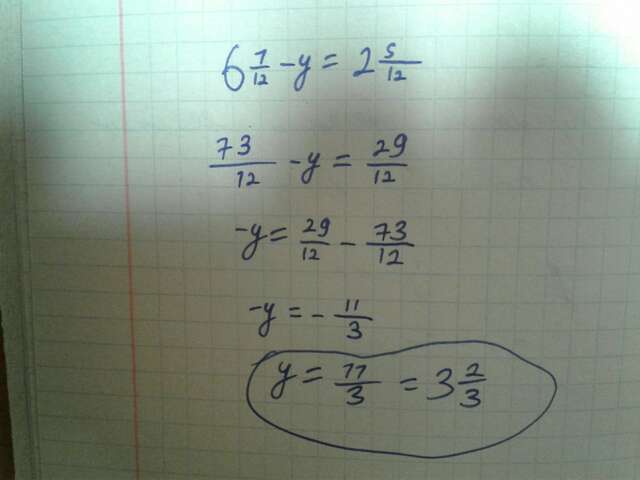 6 1/12 - y = 2 5/12
73/12 - y = 29/12
-y = 29/12 - 73/12
-y = - 11/3
y = 11/3 = 3 2/3